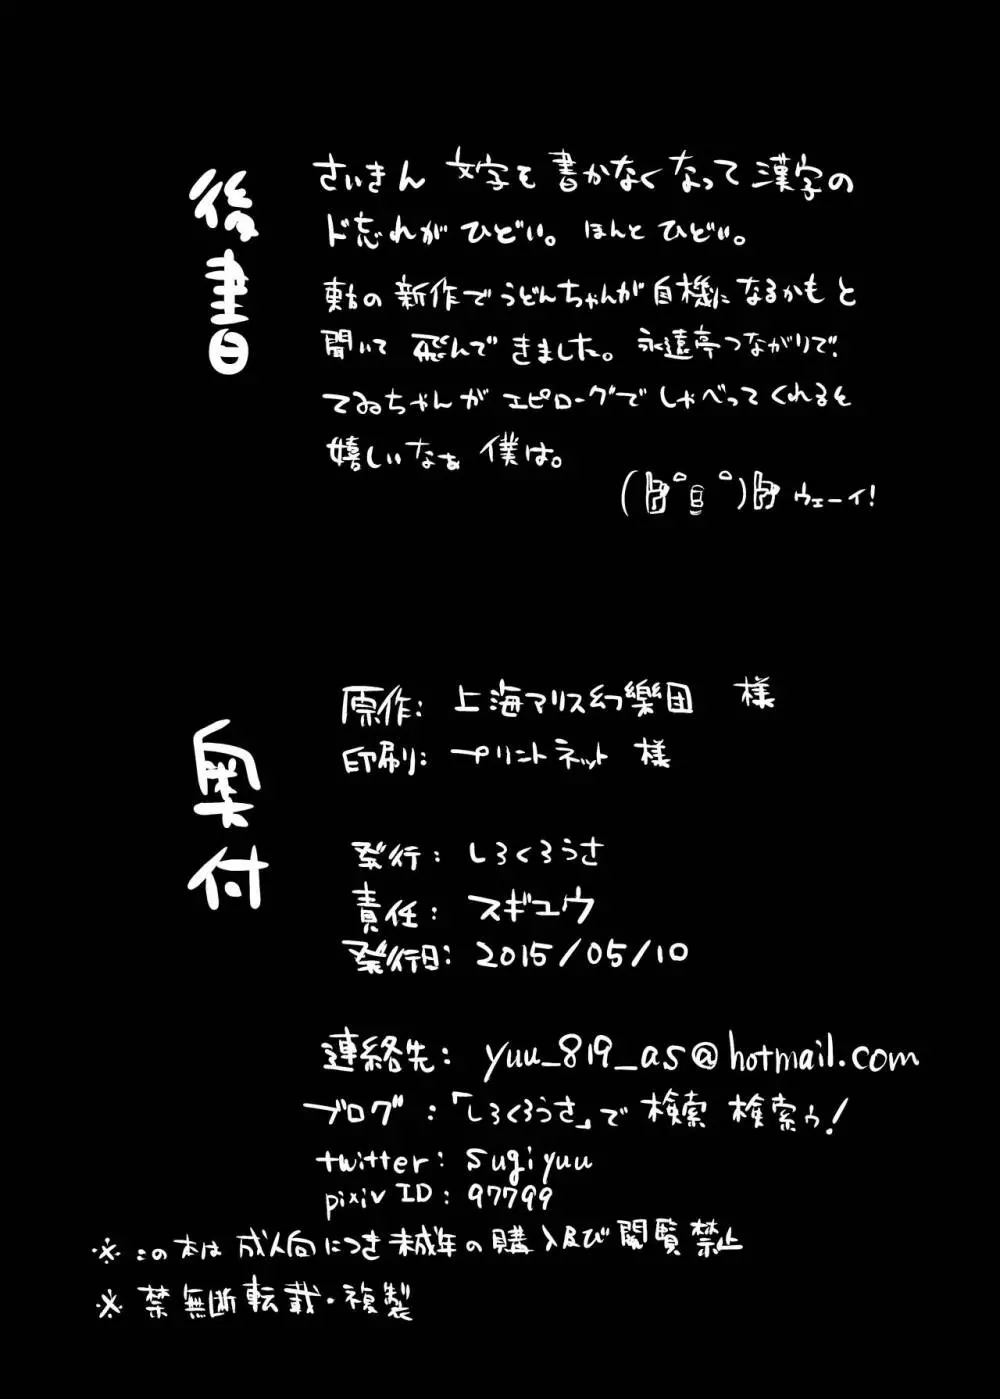 後書
さいきん 文字を書かなくなって漢字の
ド忘れがひどい。ほんとひどい。
東方の新作でうどんちゃんが自機になるかもと
聞いて飛んできました。永遠亭つながりで
てゐちゃんがエピローグでしゃべってくれると
嬉しいなぁ 僕は。
ウェーイ!
奥付
原作: 上海アリス幻樂団 様
印刷: プリントネット 様
発行: しろくろうさ
責任: スギユウ
発行日: 2015/05/10
連絡先: yuu_819_as@hotmail.com
ブログ:「しろくろうさ」で検索 検索ゥ!
twitter: sugiyuu
pixiv ID: 97799
※ この本は成人向につき未成年の購入及び閲覧禁止
※ 禁無断転載・複製